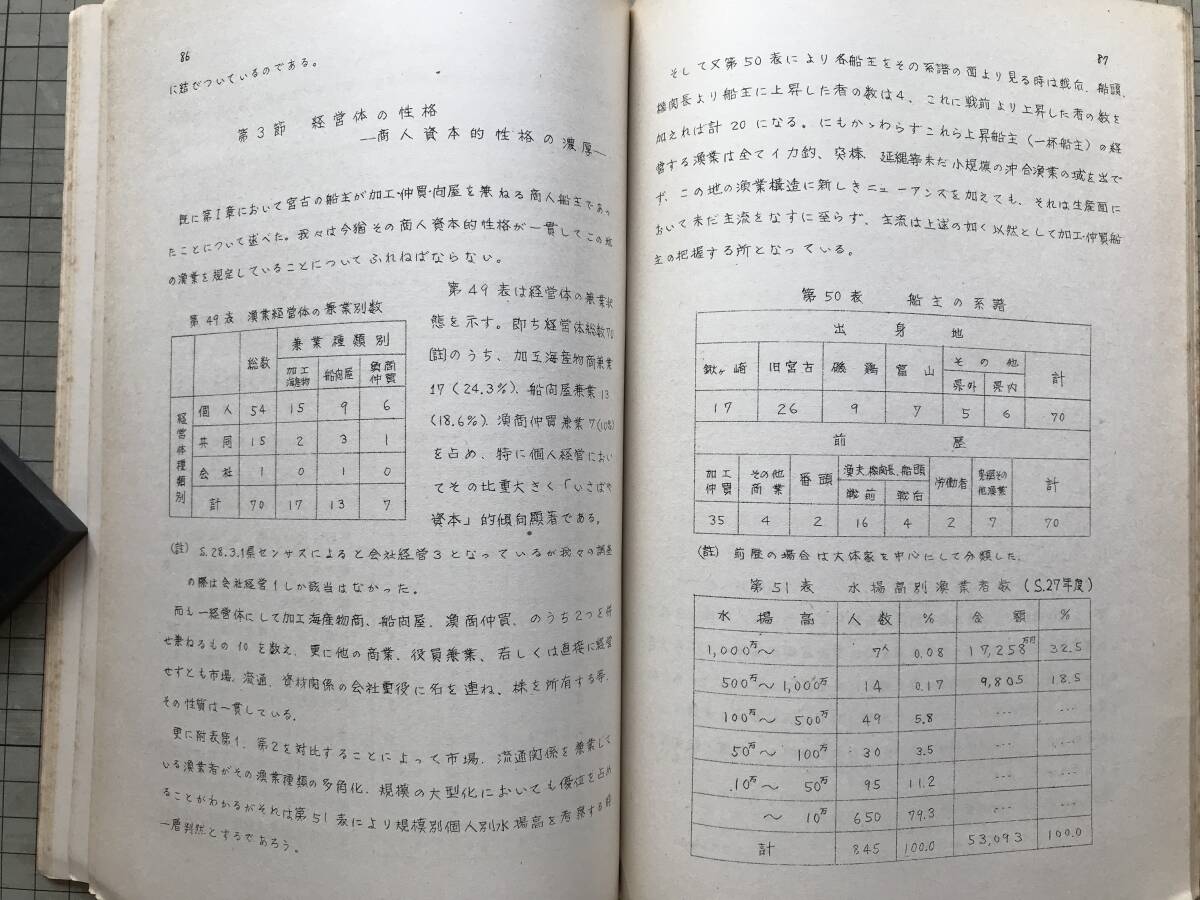 86
に結びついているのである。
第3節 経営体の性格
―商人資本的性格の濃厚―
既に第Ⅰ章において宮古の船主が加工・仲買・問屋を兼ねる商人船主であっ
たことについて述べた。我々は今猶その商人資本的性格が一貫してこの地
の漁業を規定していることについてふれねばならない。
第49表 漁業経営体の兼業別数
総数 兼業種類別
加工海産物 船問屋 魚商仲買
経営体種類別
個人 54 15 9 6
共同 15 2 3 1
会社 1 0 1 0
計 70 17 13 7
第49表は経営体の兼業状
態を示す。即ち経営体総数70
(註)のうち、加工海産物商兼業
17(24.3%)、船問屋兼業13
(18.6%)、漁商仲買兼業7(10%)
を占め、特に個人経営におい
てその比重大きく「いさばや
資本」的傾向顕著である。
(註) S.28.3.1県センサスによると会社経営3となっているが我々の調査
の際は会社経営1しか該当はなかった。
而も一経営体にして加工海産物商、船問屋、漁商仲買、のうち2つを併
せ兼ねるもの10を数え、更に他の商業、役員兼業、若しくは直接に経営
せずとも市場、流通、資材関係の会社重役に名を連ね、株を所有する等、
その性質は一貫している。
更に附表第1、第2を対比することによって市場、流通関係を兼業して
いる漁業者がその漁業種類の多角化、規模の大型化においても優位を占め
ることがわかるがそれは第51表により規模別個人別水揚高を考察する時
一層判然とするであろう。
87
そして又第50表により各船主をその系譜の面より見る時は戦后、船頭、
機関長より船主に上昇した者の数は4、これに戦前より上昇した者の数を
加えれば計20になる。にもかゝわらずこれら上昇船主(一杯船主)の経
営する漁業は全てイカ釣、突棒、延縄等未だ小規模の沖合漁業の域を出で
ず、この地の漁業構造に新しきニューアンスを加えても、それは生産面に
おいて未だ主流をなすに至らず、主流は上述の如く依然として加工・仲買船
主の把握する所となっている。
第50表 船主の系譜
出身地
鍬ヶ崎 旧宮古 磯鶏 富山 その他 計
県外 県内
17 26 9 7 5 6 70
前歴
加工仲買 その他商業 番頭 漁夫、機関長、船頭 労働者 計
戦前 戦后
35 4 2 16 4 2 7 70
(註) 前歴の場合は大体家を中心にして分類した。
第51表 水揚高別漁業者数(S.27年度)
水揚高 人数 % 金額 %
1,000万〜 7人 0.08 17,258万円 32.5
500万〜1,000万 14 0.17 9,805 18.5
100万〜500万 49 5.8 ... ...
50万〜100万 30 3.5 ... ...
10万〜50万 95 11.2 ... ...
〜10万 650 79.3 ... ...
計 845 100.0 53,093 100.0